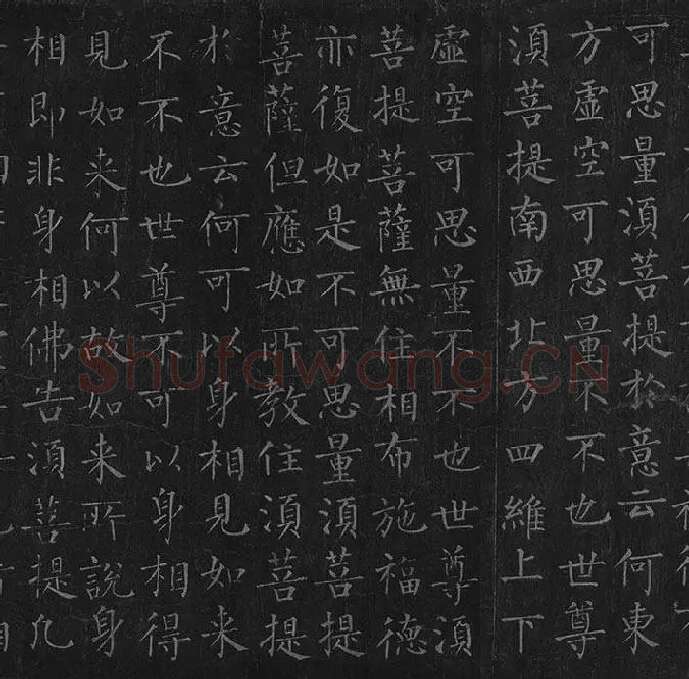 可思量須菩提於意云何東
方虛空可思量不不也世尊
須菩提南西北方四維上下
虛空可思量不不也世尊須
菩提菩薩無住相布施福德
亦復如是不可思量須菩提
菩薩但應如所教住須菩提
於意云何可以身相見如来
不不也世尊不可以身相得
見如来何以故如来所說身
相即非身相佛告須菩提凡
Shufawang.CN